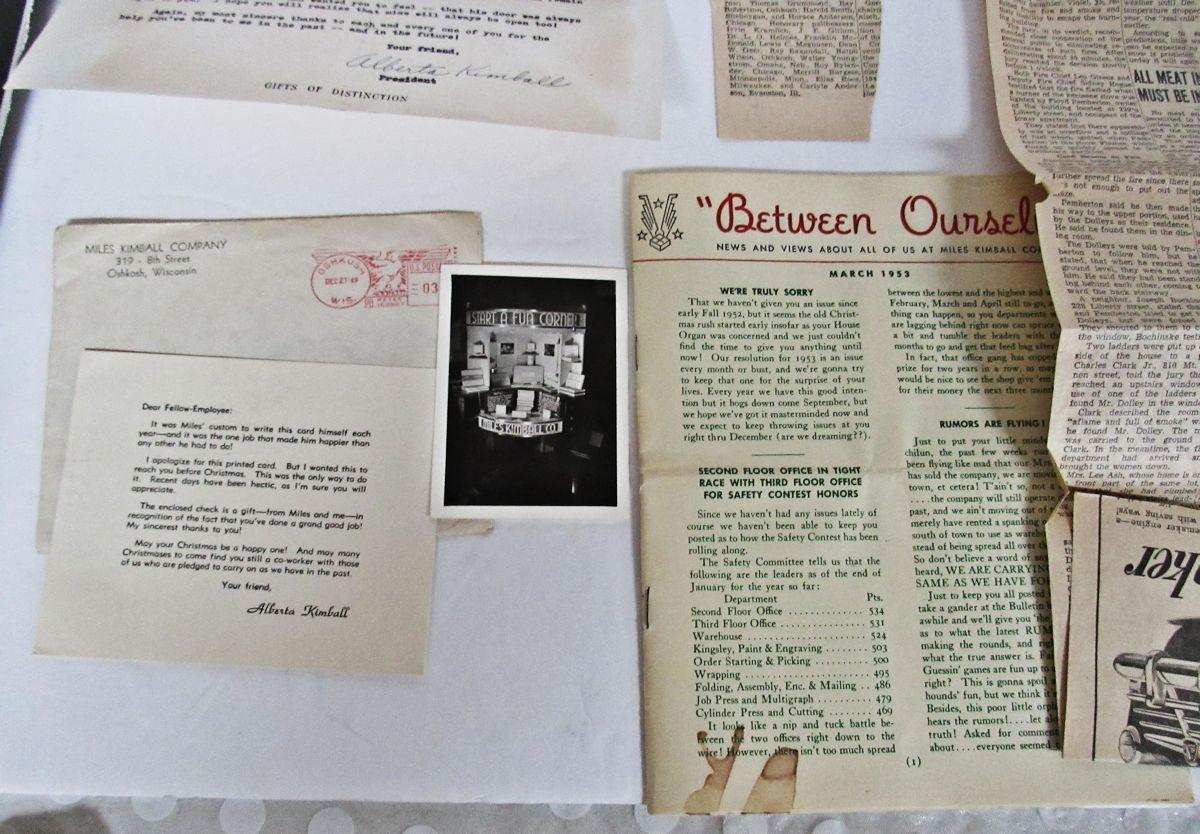 wanted you to feel -- that his door was always
you will realize that mine will always be open too!
Again, my most sincere thanks to each and every one of you for the
help you've been to me in the past -- and in the future!
Your friend,
Alberta Kimball
President
GIFTS OF DISTINCTION
MILES KIMBALL COMPANY
319 - 8th Street
Oshkosh, Wisconsin
OSHKOSH
DEC 23 49
WIS.
U.S. POSTAGE
03
Dear Fellow-Employee:
It was Miles' custom to write this card himself each
year—and it was the one job that made him happier than
any other he had to do!
I apologize for this printed card. But I wanted this to
reach you before Christmas. This was the only way to do
it. Recent days have been hectic, as I'm sure you will
appreciate.
The enclosed check is a gift—from Miles and me—in
recognition of the fact that you've done a grand good job!
My sincerest thanks to you!
May your Christmas be a happy one! And may many
Christmases to come find you still a co-worker with those
of us who are pledged to carry on as we have in the past.
Your friend,
Alberta Kimball
START A FUN CORNER
MILES KIMBALL CO.
"Between Oursel
NEWS AND VIEWS ABOUT ALL OF US AT MILES KIMBALL CO
MARCH 1953
WE'RE TRULY SORRY
That we haven't given you an issue since
early Fall 1952, but it seems the old Christ-
mas rush started early insofar as your House
Organ was concerned and we just couldn't
find the time to give you anything until
now! Our resolution for 1953 is an issue
every month or bust, and we're gonna try
to keep that one for the surprise of your
lives. Every year we have this good inten-
tion but it bogs down come September, but
we hope we've got it masterminded now and
we expect to keep throwing issues at you
right thru December (are we dreaming??).
SECOND FLOOR OFFICE IN TIGHT
RACE WITH THIRD FLOOR OFFICE
FOR SAFETY CONTEST HONORS
Since we haven't had any issues lately of
course we haven't been able to keep you
posted as to how the Safety Contest has been
rolling along.
The Safety Committee tells us that the
following are the leaders as of the end of
January for the year so far:
Department Pts.
Second Floor Office .............. 534
Third Floor Office ............... 531
Warehouse ...................... 524
Kingsley, Paint & Engraving ....... 503
Order Starting & Picking .......... 500
Wrapping ....................... 495
Folding, Assembly, Enc. & Mailing .. 486
Job Press and Multigraph .......... 479
Cylinder Press and Cutting ........ 469
It looks like a nip and tuck battle be-
tween the two offices right down to the
wire! However, there isn't too much spread
between the lowest and the highest and w
February, March and April still to go, a
thing can happen, so you departments
are lagging behind right now can spruce
a bit and tumble the leaders with th
months to go and get that feed bag after
In fact, that office gang has copped
prize for two years in a row, so m
would be nice to see the shop give 'em
for their money the next three mont
RUMORS ARE FLYING!
Just to put your little minds
chilun, the past few weeks
been flying like mad that our Mrs
has sold the company, we are movi
town, et cetera! T'ain't so, not a
....the company will still operate
past, and we ain't moving out of
merely have rented a spanking
south of town to use as wareh
stead of being spread all over th
So don't believe a word of any
heard, WE ARE CARRYING
SAME AS WE HAVE FO
Just to keep you all posted
take a gander at the Bulletin
awhile and we'll give you 'the
as to what the latest RUM
making the rounds, and righ
what the true answer is.
Guessin' games are fun up to
right? This is gonna spoil
hounds' fun, but we think it
Besides, this poor little orph
hears the rumors!....let alo
truth! Asked for comment
about....everyone seemed t
(1)
ALL MEAT IN
MUST BE IN
further spread the fire since there
's not enough to put out the
Pemberton said he then made
his way to the upper portion, used
by the Dolleys as their residence.
He said he found them in the din-
ing room.
The Dolleys were told by Pem-
berton to follow him, but he
stated, that when he reached the
ground level, they were not with
Two ladders were put up
side of the house to a
Charles Clark Jr., 810 Mt.
non street, told the jury tha
reached an upstairs window
use of one of the ladders
found Mr. Dolley in the window
Clark described the room
"aflame and full of smoke"
he found Mr. Dolley. The m
was carried to the ground
Clark. In the meantime, the fi
department had arrived an
brought the women down.
Mrs. Lee Ash, whose home is on
front part of the same lot,